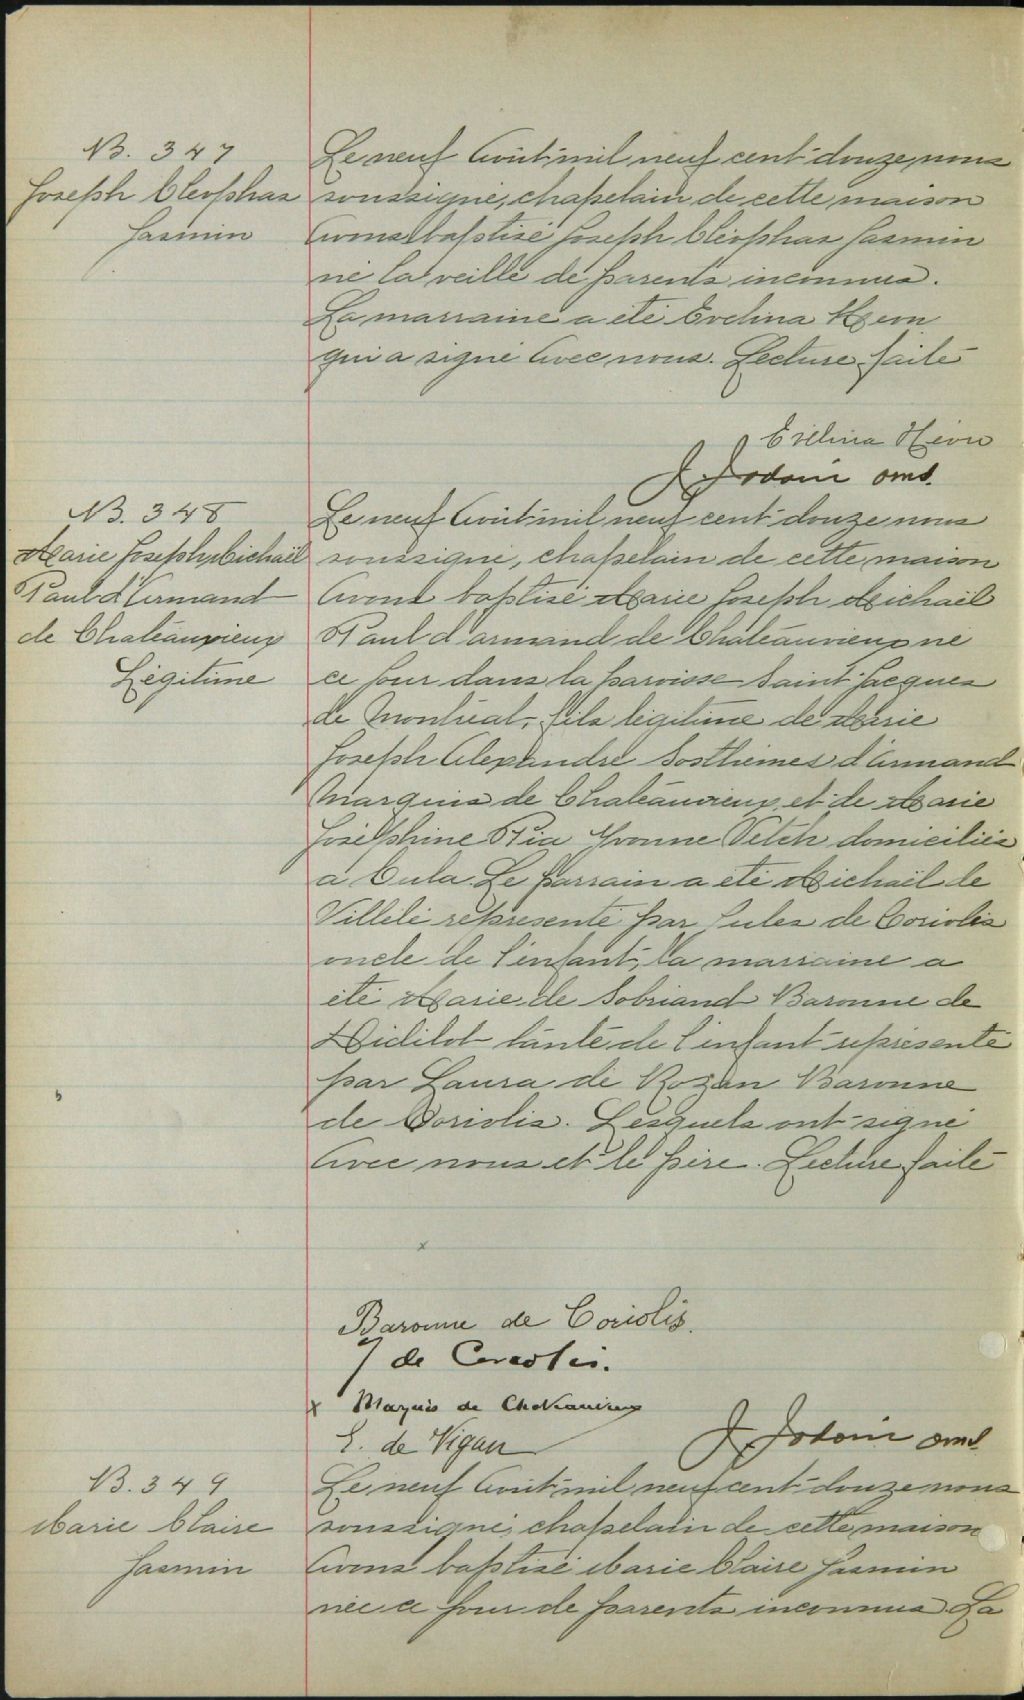 B. 347
Joseph Cléophas
Jasmin
Le neuf Août mil neuf cent douze, nous
soussigné, chapelain de cette maison
Avons baptisé Joseph Cléophas Jasmin
né la veille de parents inconnus.
La marraine a été Evelina Héon
qui a signé avec nous. Lecture faite
Evelina Héon
J. Jodoin omd.
B. 348
Marie Joseph Michaël
Paul d'Armand
de Chateâuvieux
Légitime
Le neuf Août mil neuf cent douze nous
soussigné, chapelain de cette maison
Avons baptisé Marie Joseph Michaël
Paul d'armand de Chateâuvieux né
ce jour dans la paroisse Saint Jacques
de Montréal, fils légitime de Marie
Joseph Alexandre Sosthèmes d'Armand
Marquis de Chateâuvieux et de Marie
Joséphine Pia Yvonne Vetch domiciliés
a Cula. Le parrain a été Michaël de
Villèlé représenté par Jules de Coriolis
oncle de l'enfant, la marraine a
été Marie de Sobriand Baronne de
tante de l'enfant représenté
par Laura de Rozan Baronne
de Coriolis. Lesquels ont signé
Avec nous et le père. Lecture faite
x
Baronne de Coriolis.
J de Coriolis.
x Marquis de Chateauvieux
E. de Vigan
J. Jodoin omd.
B. 349
Marie Claire
Jasmin
Le neuf Août mil neuf cent douze nous
soussigné, chapelain de cette maison
Avons baptisé Marie Claire Jasmin
née ce jour de parents inconnus. La